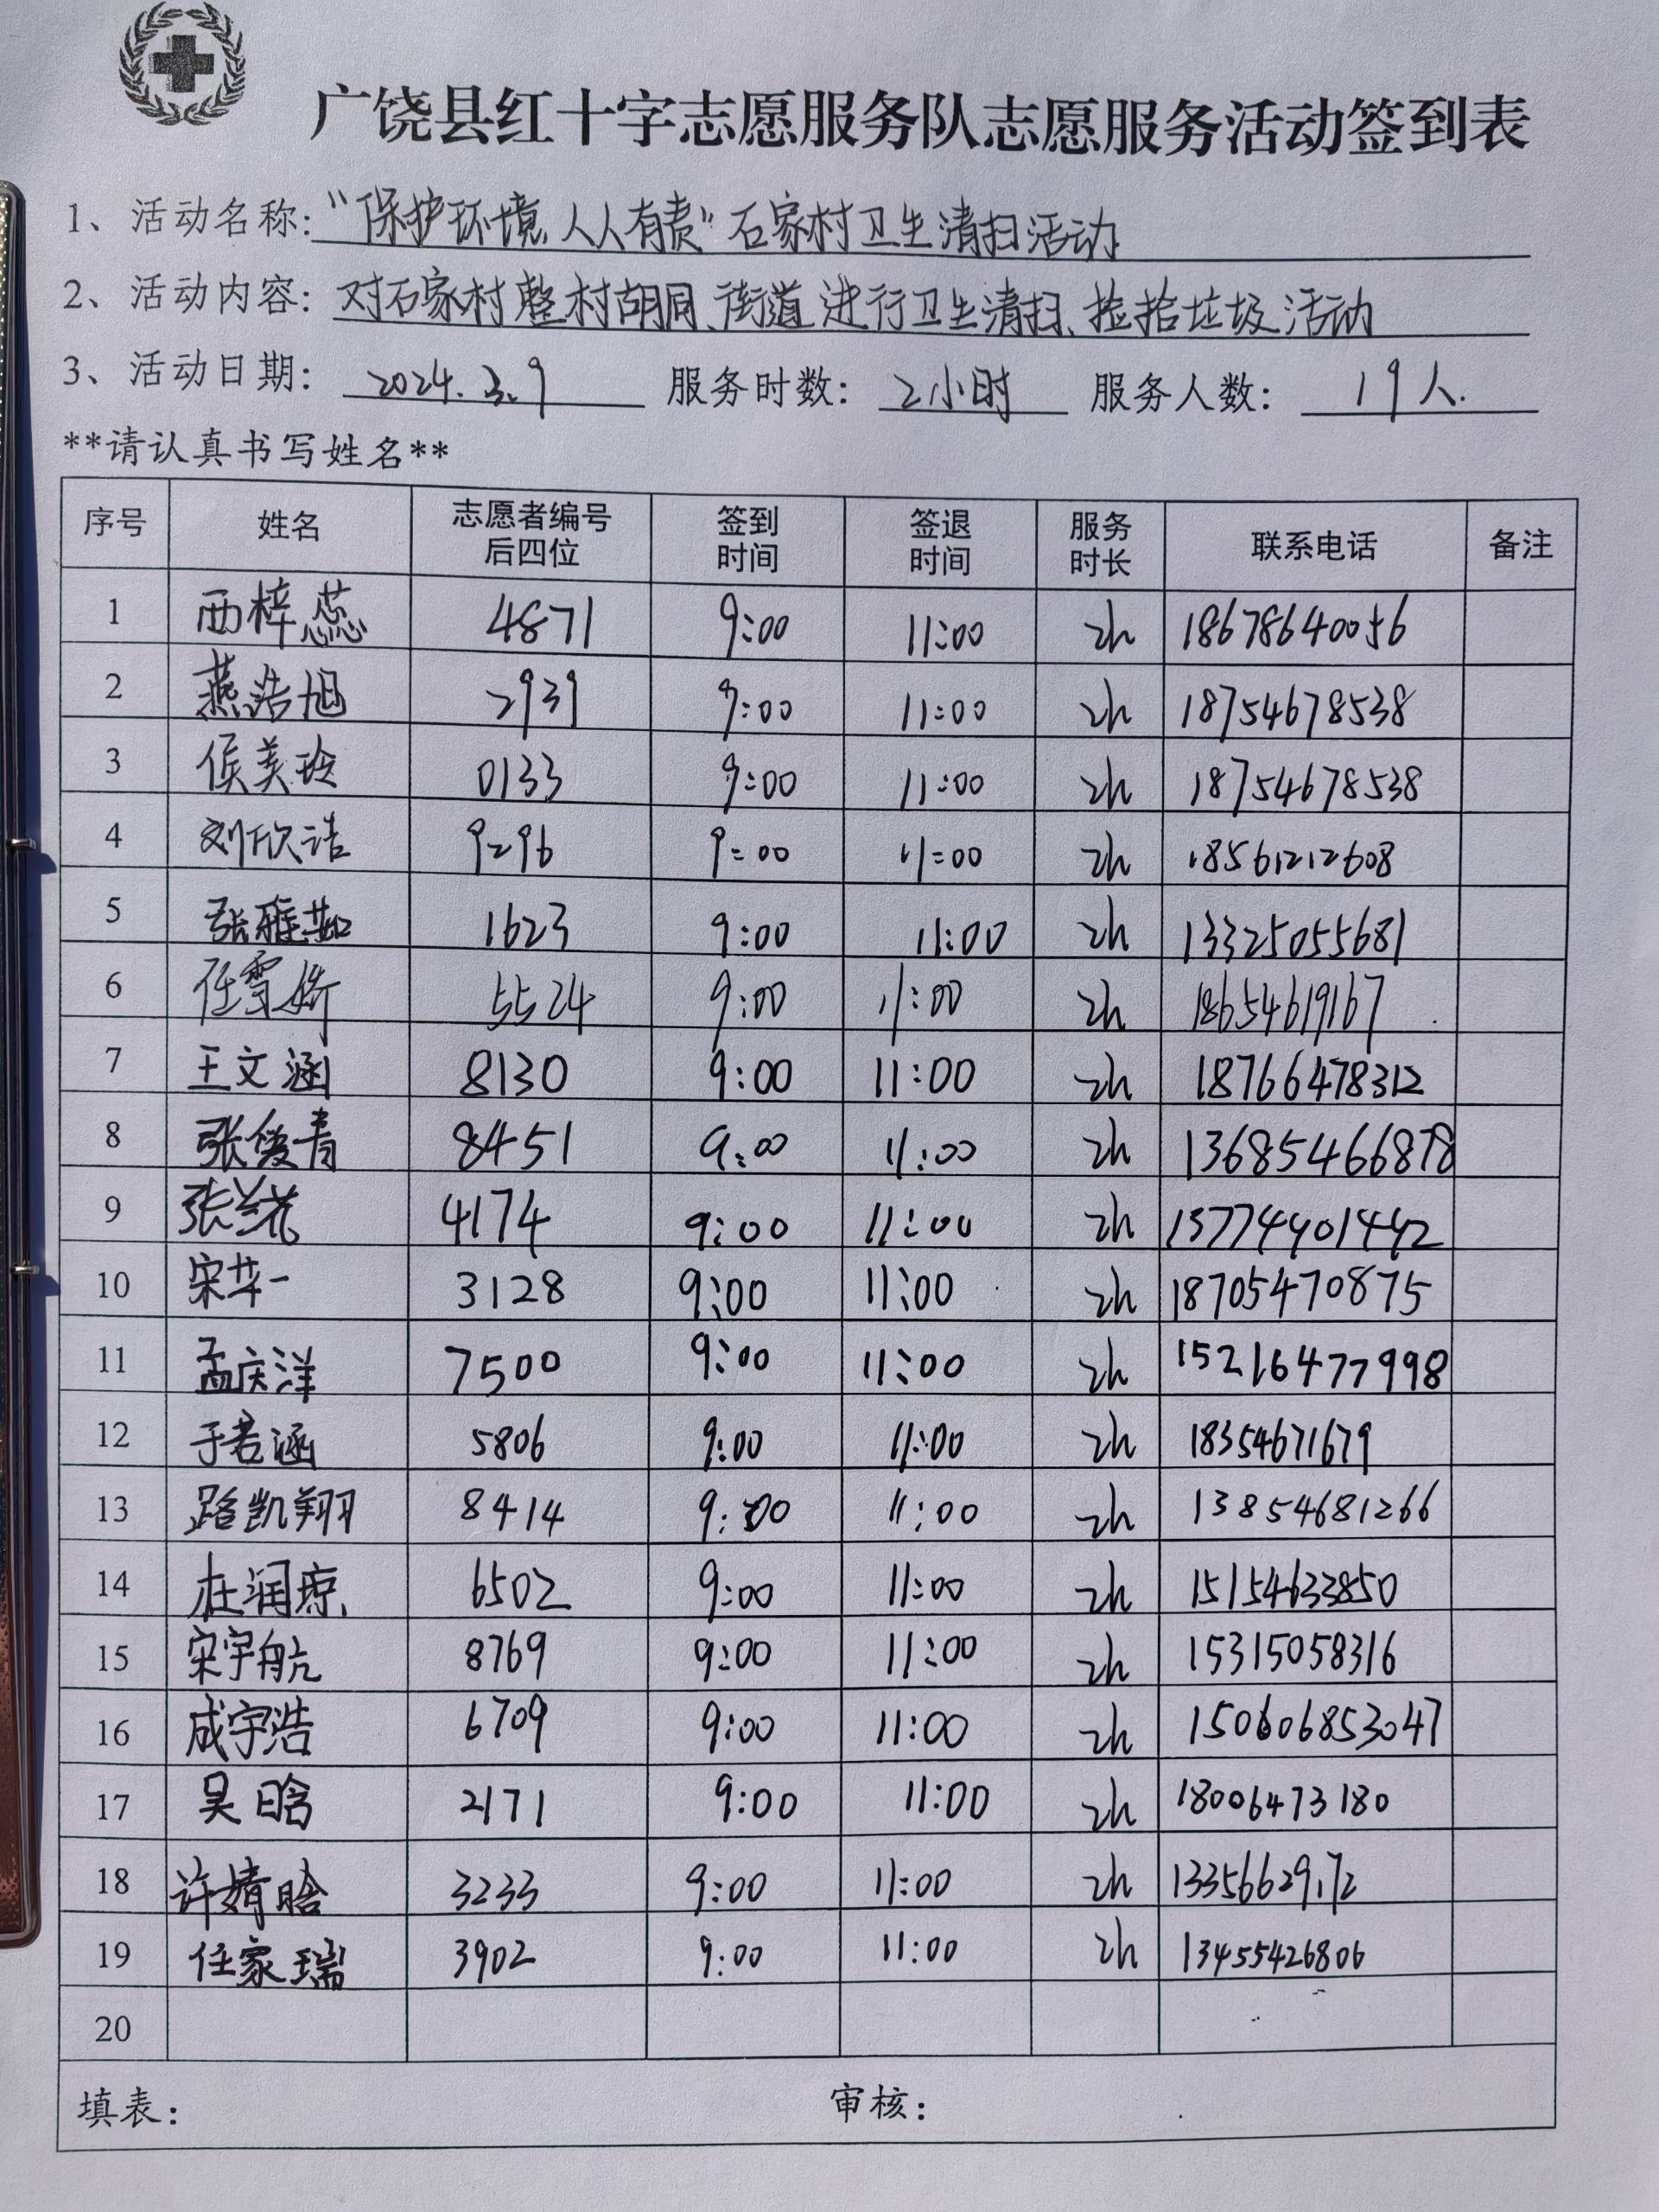 广饶县红十字志愿服务队志愿服务活动签到表
1、活动名称:“保护环境、人人有责”石家村卫生清扫活动
2、活动内容:对石家村整村胡同、街道进行卫生清扫、捡拾垃圾活动
3、活动日期: 2024.3.9 服务时数: 2小时 服务人数: 19人.
**请认真书写姓名**
序号 姓名 志愿者编号后四位 签到时间 签退时间 服务时长 联系电话 备注
1 西梓蕊 4871 9:00 11:00 2h 18678640056
2 燕浩旭 2939 9:00 11:00 2h 18754678538
3 侯美玲 0133 9:00 11:00 2h 18754678538
4 刘欣洁 9296 9:00 11:00 2h 18561212608
5 张雅茹 1623 9:00 11:00 2h 13325055681
6 任雪娇 5524 9:00 11:00 2h 18654619167
7 王文涵 8130 9:00 11:00 2h 18766478312
8 张俊青 8451 9:00 11:00 2h 13685466878
9 张兰花 4174 9:00 11:00 2h 13774401442
10 宋华一 3128 9:00 11:00 2h 18705470875
11 孟庆洋 7500 9:00 11:00 2h 15216477998
12 于若涵 5806 9:00 11:00 2h 18354671679
13 路凯翔 8414 9:00 11:00 2h 13854681266
14 杜润琼 6502 9:00 11:00 2h 15154633850
15 宋宇航 8769 9:00 11:00 2h 15315058316
16 成宇浩 6709 9:00 11:00 2h 150606853047
17 吴晗 2171 9:00 11:00 2h 18006473180
18 许婧晗 3233 9:00 11:00 2h 13356629172
19 任家瑞 3902 9:00 11:00 2h 13455426806
20
填表: 审核: